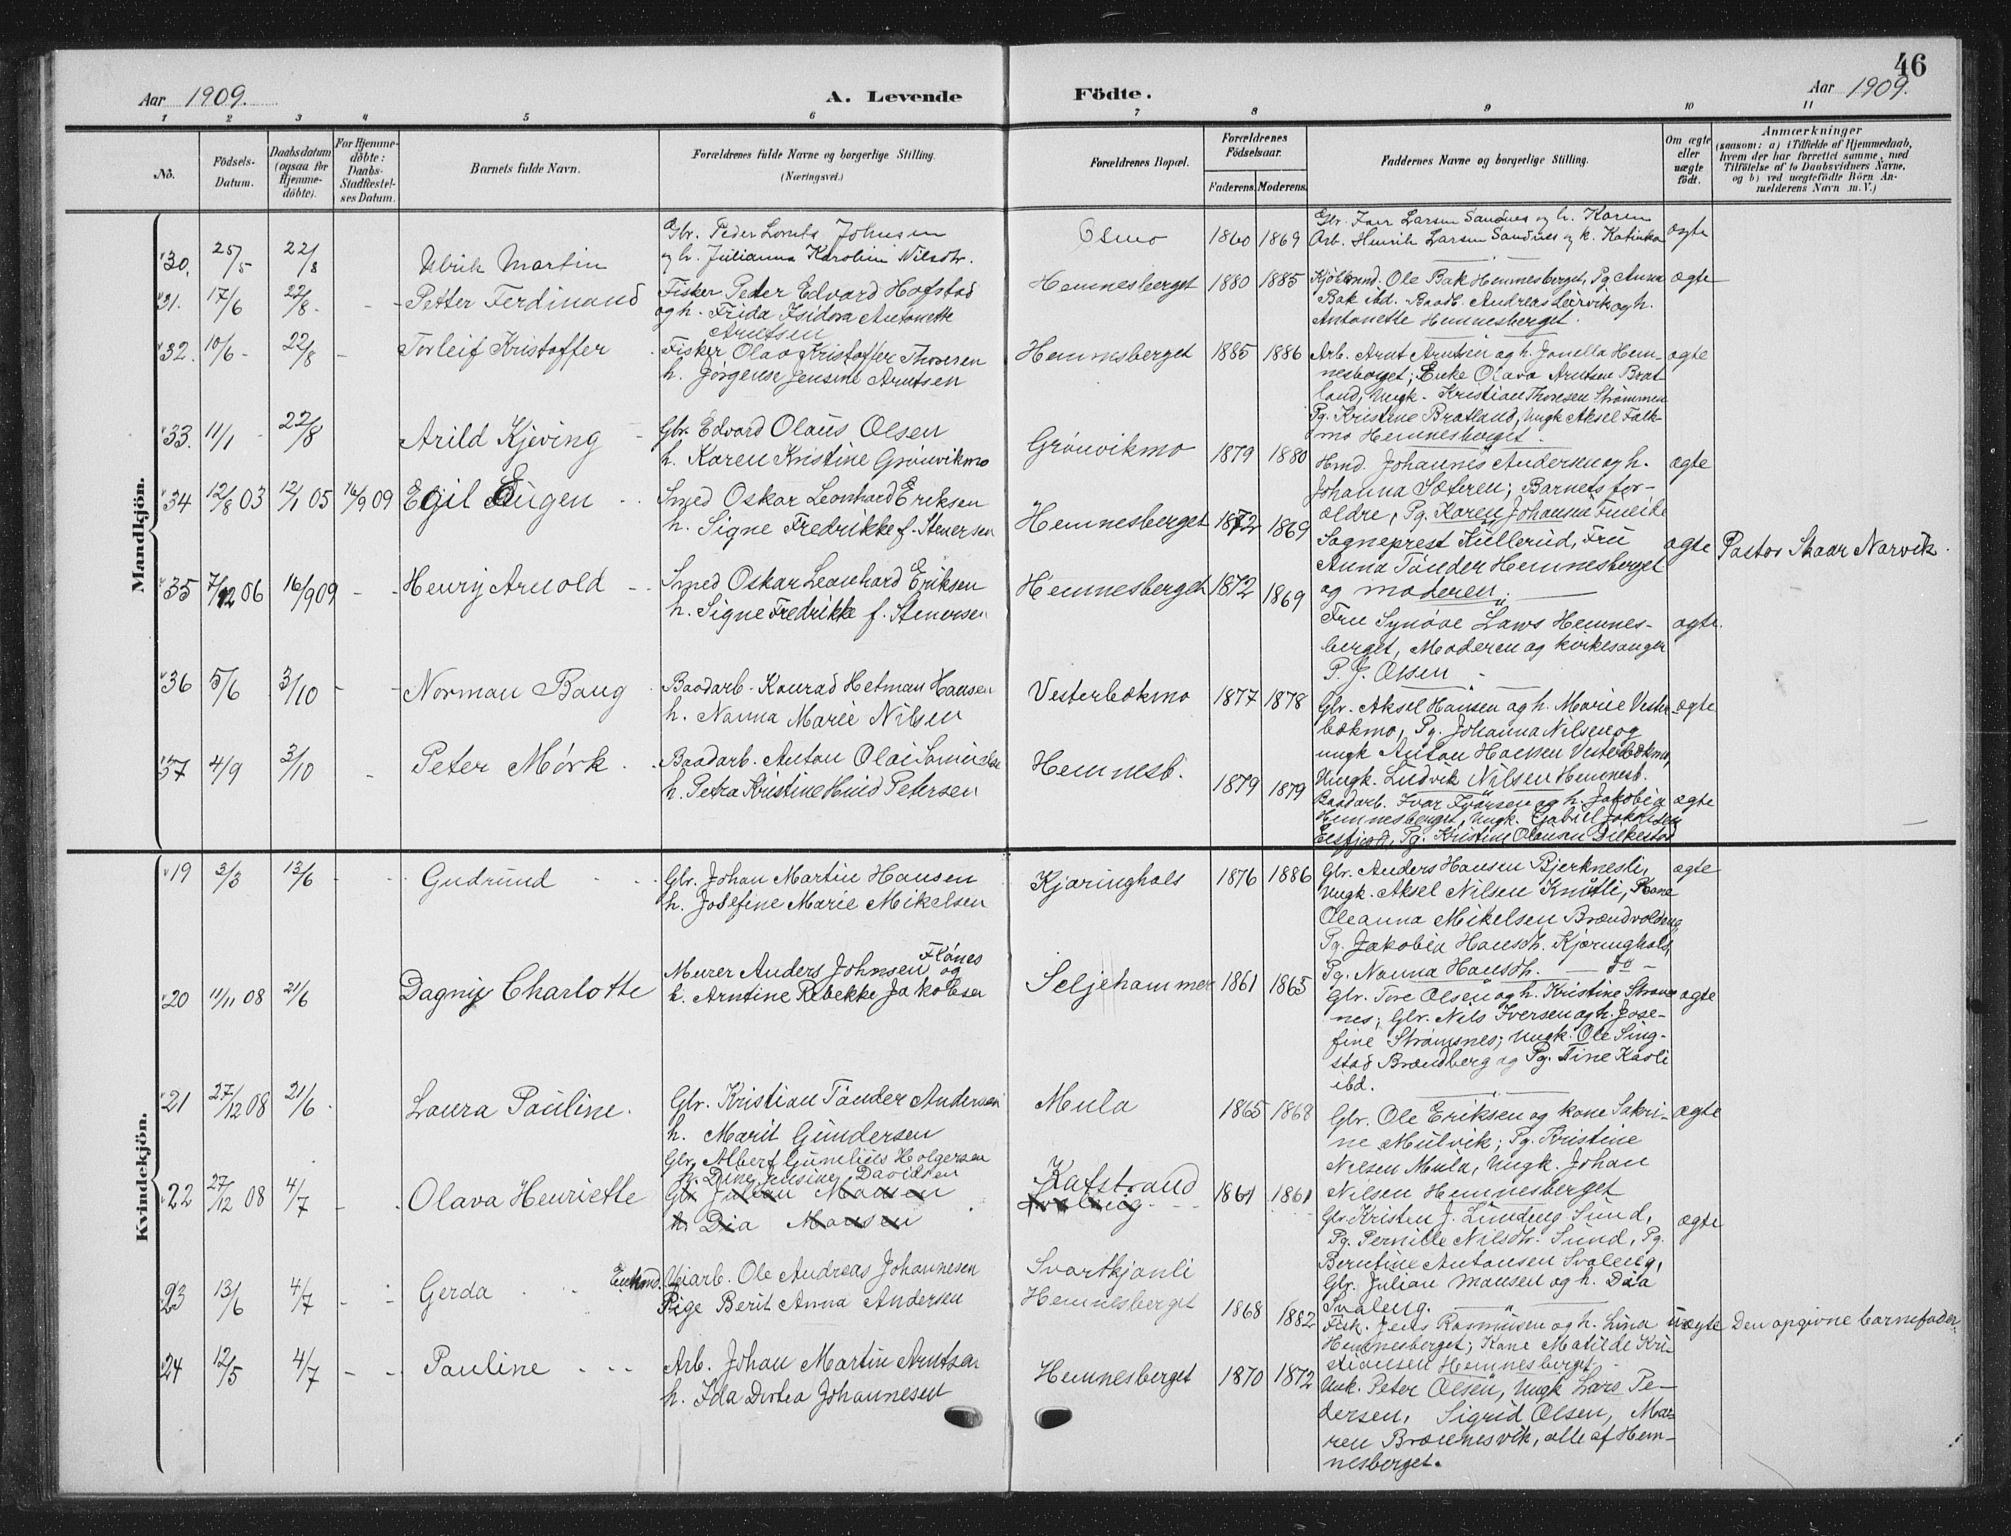 46
Aar 1909.
A. Levende
Födte.
Aar 1909.
1 2 3 4 5 6 7 8 9 10 11
No.
Födsels-Datum.
Daabsdatum (ogsaa for Hjemme-döbte).
For Hjemme-döbte: Daabs-Stadfæstel-ses Datum.
Barnets fulde Navn.
Forældrenes fulde Navne og borgerlige Stilling.
(Næringsvei.)
Forældrenes Bopæl.
Forældrenes Födselsaar.
Faderens. Moderens.
Faddernes Navne og borgerlige Stilling.
Om ægte eller uægte födt.
Anmærkninger
(saasom: a) i Tilfælde af Hjemmedaab,
hvem der har forrettet samme, med
Tilföielse af to Daabsvidners Navne,
og b) ved uægtefödte Börn An-
melderens Navn m. V.)
Mandkjön.
30. 25/5 22/8 Ulrik Martin
Gbr. Peder Lorents Johnsen
og h. Julianna Karoline Nilsdtr.
Osmo 1860 1869
Gbr. Iver Larsen Sandnes og h. Karen
Arb. Henrik Larsen Sandnes og k. Katinka
ægte
31. 17/6 22/8 Petter Ferdinand
Fisker Peder Edvard Hofstad
og h. Frida Isidora Antonette
Arntsen
Hemnesberget 1880 1885
Kjøbmd. Ole Bak Hemnesberget, Pg. Anna
Bak ibd. Baadb. Andreas Leirvik og h.
Antonette Hemnesberget.
ægte
32. 10/6 22/8 Torleif Kristoffer
Fisker Olao Kristoffer Thoresen
h. Jörgense Jensine Arntsen
Hemnesberget 1885 1886
Arb. Arnt Arntsen og h. Jonella Hem-
nesberget; Enke Olava Arntsen Brat-
land, Ungk. Kristian Thoresen Strømmen
Pg. Kristine Bratland, Ungk Aksel Falk-
mo Hemnesberget.
ægte
33. 11/1 22/8 Arild Kjeving
Gbr. Edvard Olaus Olsen
h. Karen Kristine Grønvikmo
Grønvikmo 1879 1880
Hmd. Johannes Andersen og h.
Johanna Sæteren; Barnets for-
ældre, Pg. Karen Johanne Fineide
ægte
34 12/8 03 12/1 05 16/9 09 Egil Eugen
Smed Oskar Leonhard Eriksen
h. Signe Fredrikke f. Stenersen
Hemnesberget 1872 1869
Sogneprest Kullerud, Fru
Anna Tönder Hemnesberget
og moderen.
ægte Pastor Skaar Narvik.
35 7/12 06 16/9 09 Henry Arnold
Smed Oskar Leonhard Eriksen
h. Signe Fredrikke f. Stenersen
Hemnesberget 1872 1869
Fru Synöve Laws Hemnes-
berget, Moderen og kirkesanger
P. J. Olsen
ægte.
36 5/6 3/10 Norman Baug
Baadarb. Konrad Hetman Hansen
h. Nanna Marie Nilsen
Vesterbækmo 1877 1878
Gbr. Aksel Hansen og h. Marie Vester-
bækmo, Pg. Johanna Nilsen og
ungk Anton Hansen Vesterbækmo,
Ungk. Ludvik Nilsen Hemnesb.
ægte
37 4/9 3/10 Peter Mörk
Baadarb. Anton Olai
h. Petra Kristine Petersen
Hemnesb. 1879 1879
Baadarb. Ivar Ivarsen og h. Jakobia
Hemnesberget, Ungk. Gabriel Jakobsen
Pg. Kristine Olausen
ægte
Kvindekjön.
19 3/3 13/6 Gudrund
Gbr. Johan Martin Hansen
h. Josefine Marie Mikelsen
Kjæringhals 1876 1886
Gbr. Anders Hansen Bjerknesli,
Ungk. Aksel Nilsen Knutli, Kone
Oleanna Mikelsen Brændvoldeng
Pg. Jakobia Hansdtr. Kjæringhals,
Pg. Nanna Hansdtr. do
ægte
20 11/11 08 21/6 Dagny Charlotte
Murer Anders Johnsen Flönes og
h. Arntine Rebekke Jakobsen
Seljehammer 1861 1865
Gbr. Tore Olsen og h. Kristine Strøms-
nes; Gbr. Nils Iversen og h. Jose-
fine Strømsnes; Ungk. Ole Sing-
stad Brændberg og Pg. Tine Kaoli
ibd.
ægte
21 27/12 08 21/6 Laura Pauline.
Gbr. Kristian Tönder Andersen
h. Marit Gundersen
Mula 1865 1868
Gbr. Ole Eriksen og kone Sakri-
ne Mulvik; Pg. Kristine
Nilsen Mula, Ungk. Johan
Nilsen Hemnesberget
ægte
22 27/12 08 4/7 Olava Henriette
Gbr. Albert Gunelius Holgersen
h. Dine Jensine Davidsen
Gbr. Julian Monsen
h. Dia Monsen
Kafstrand
Svaleng
1861 1861
Gbr. Kristen J. Lundeng Sund,
Pg. Pernille Nilsdtr. Sund, Pg.
Berntine Antonsen Svaleng,
Gbr. Julian Monsen og h. Daa
Svaleng.
ægte
23 13/6 4/7 Gerda
Enkmd. Veiarb. Ole Andreas Johannesen
Pige Berit Anna Andersen
Svartkjönli
Hemnesberget
1868 1882
Fisk. Jens Rasmusen og h. Lina
Hemnesberget; Kone Matilde Kri-
stiansen Hemnesberget.
uægte Den opgivne barnefader.
24 12/5 4/7 Pauline
Arb. Johan Martin Arntsen
h. Ida Dortea Johannesen
Hemnesberget 1870 1872
Unk. Peter Olsen, Ungk Lars Pe-
dersen, Sigrid Olsen, Ma-
ren Brænnesvik, alle af Hem-
nesberget.